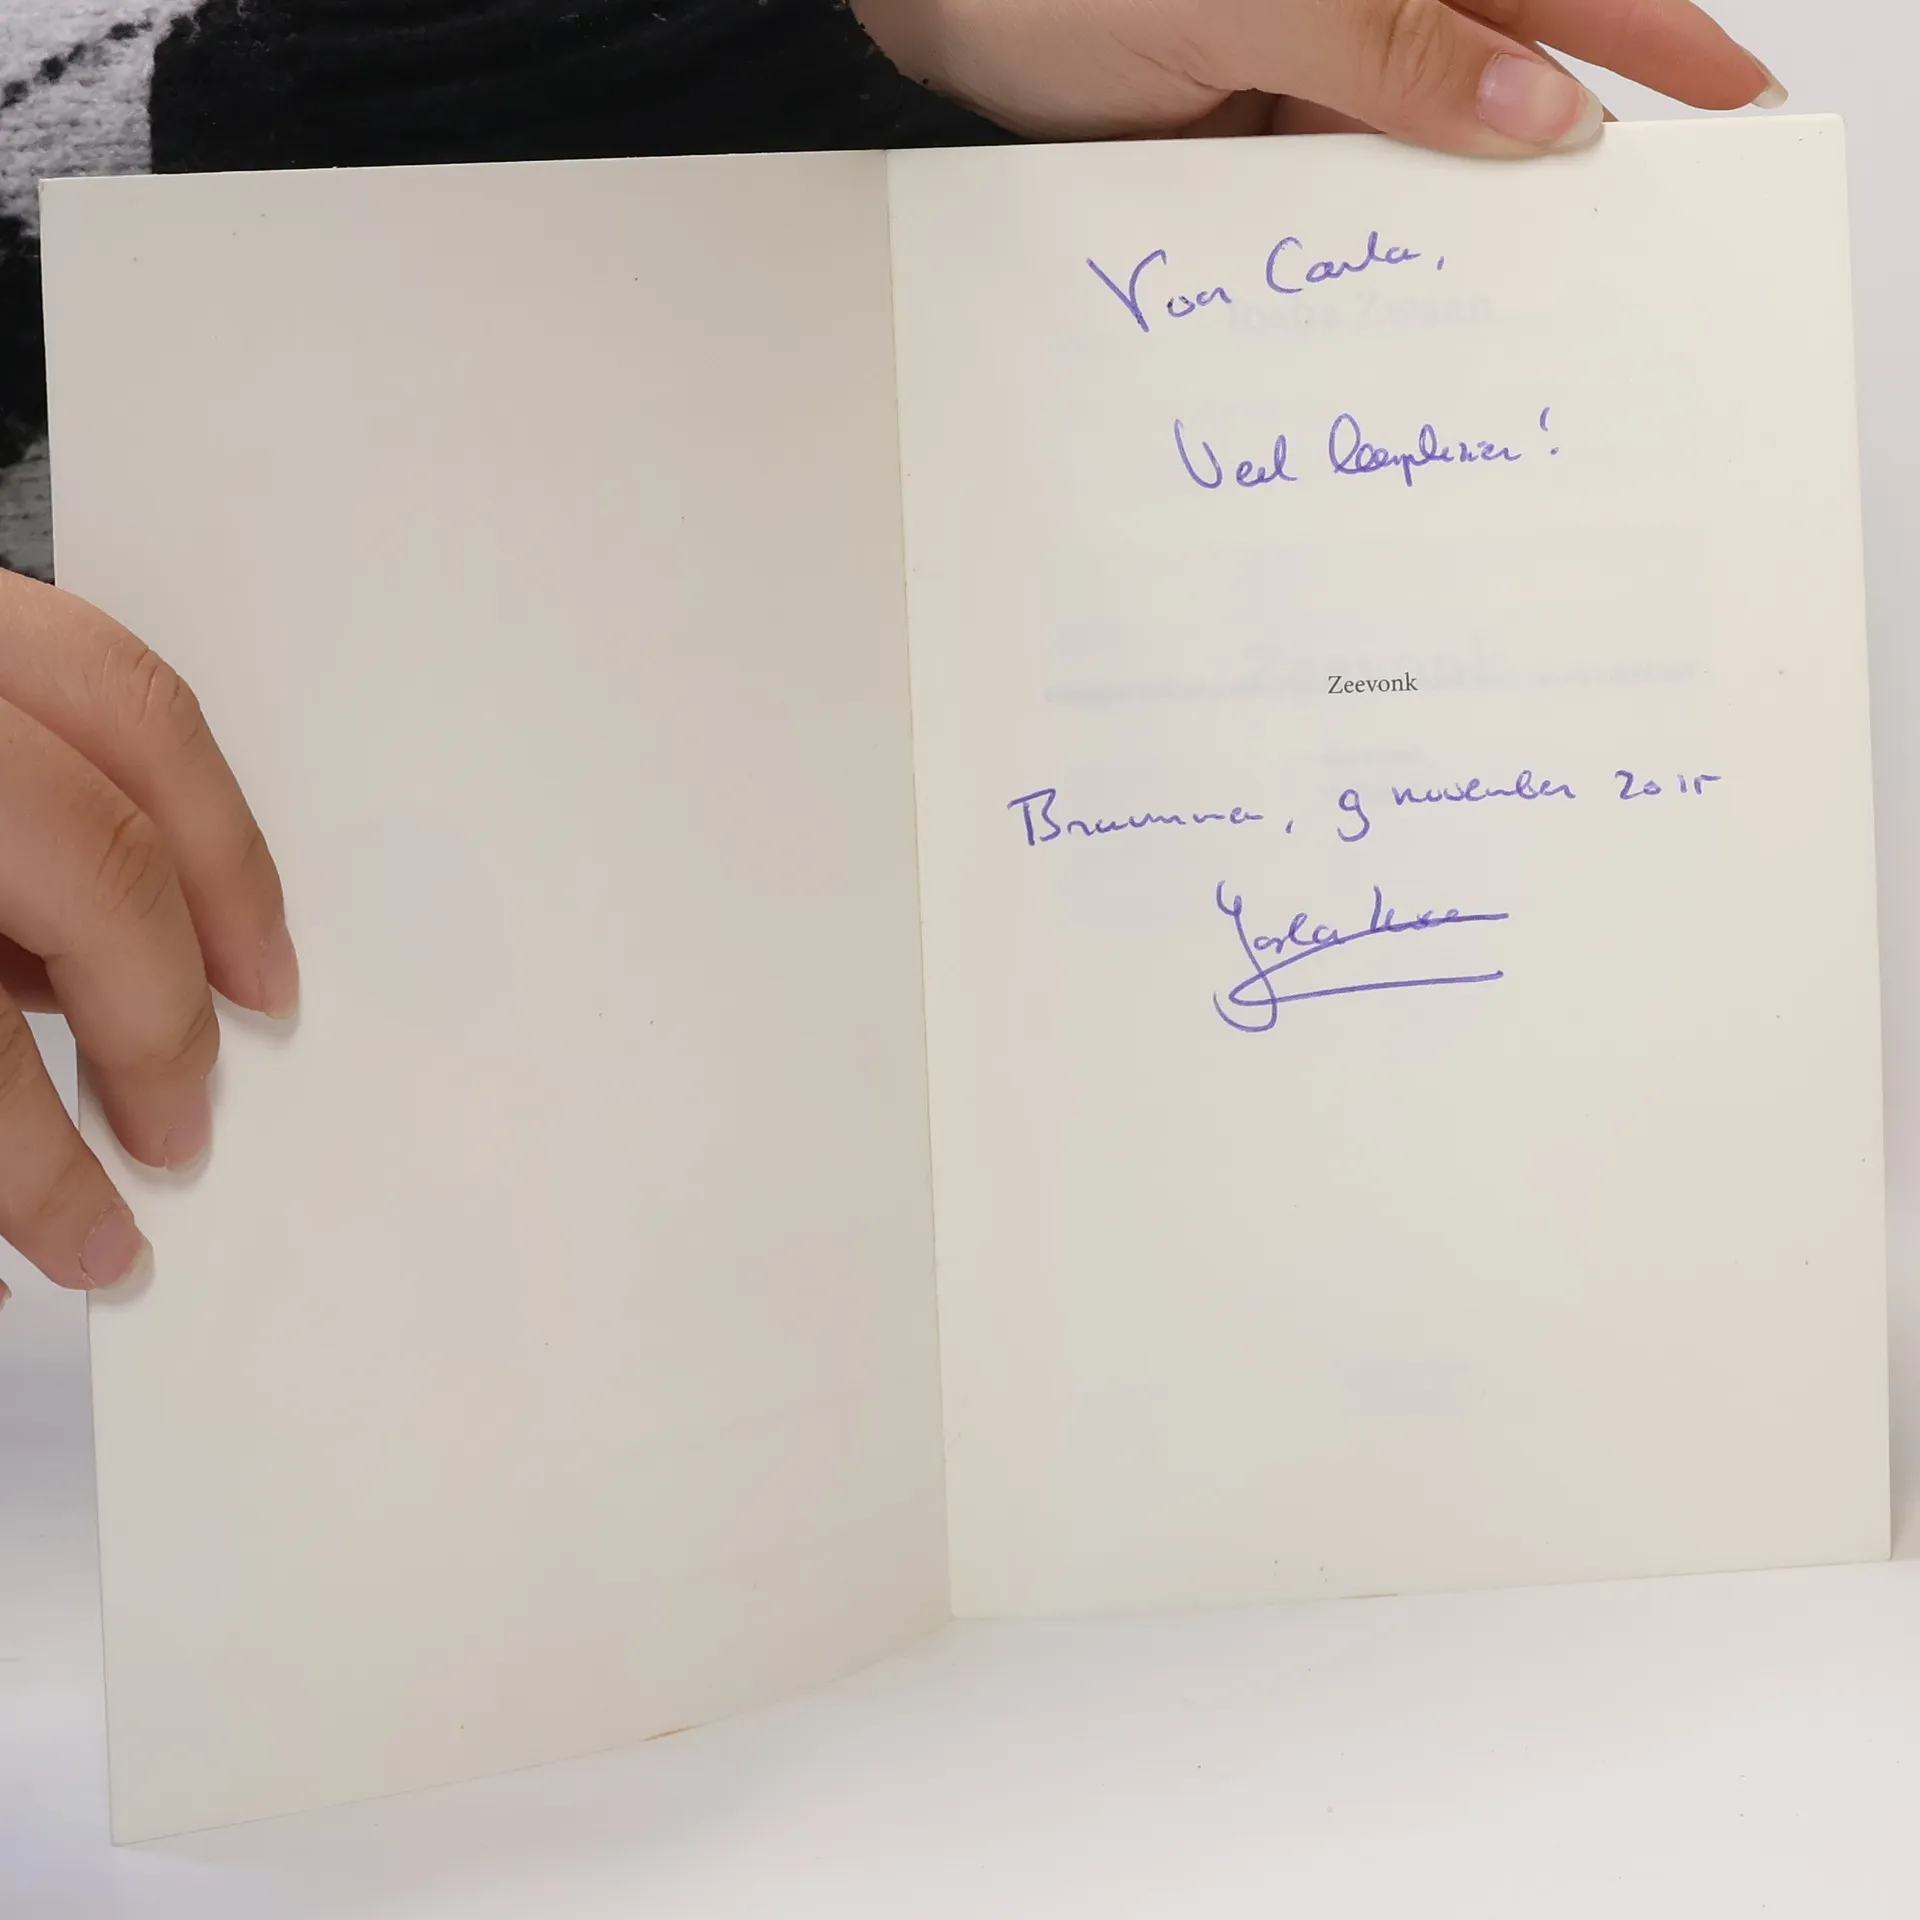 Voor Carla,
Veel leesplezier!
Zeevonk
Brummen, 9 november 2015